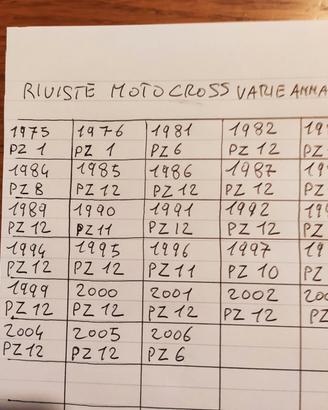 RIVISTE MOTOCROSS VARIE ANNA
1975 1976 1981 1982 19
PZ 1 PZ 1 PZ 6 PZ 12 PZ
1984 1985 1986 1987 19
PZ 8 PZ 12 PZ 12 PZ 12 PZ
1989 1990 1991 1992 19
PZ 12 PZ 11 PZ 12 PZ 12 PZ
1994 1995 1996 1997 19
PZ 12 PZ 12 PZ 11 PZ 10 PZ
1999 2000 2001 2002 200
PZ 12 PZ 12 PZ 12 PZ 12 PZ
2004 2005 2006
PZ 12 PZ 12 PZ 6